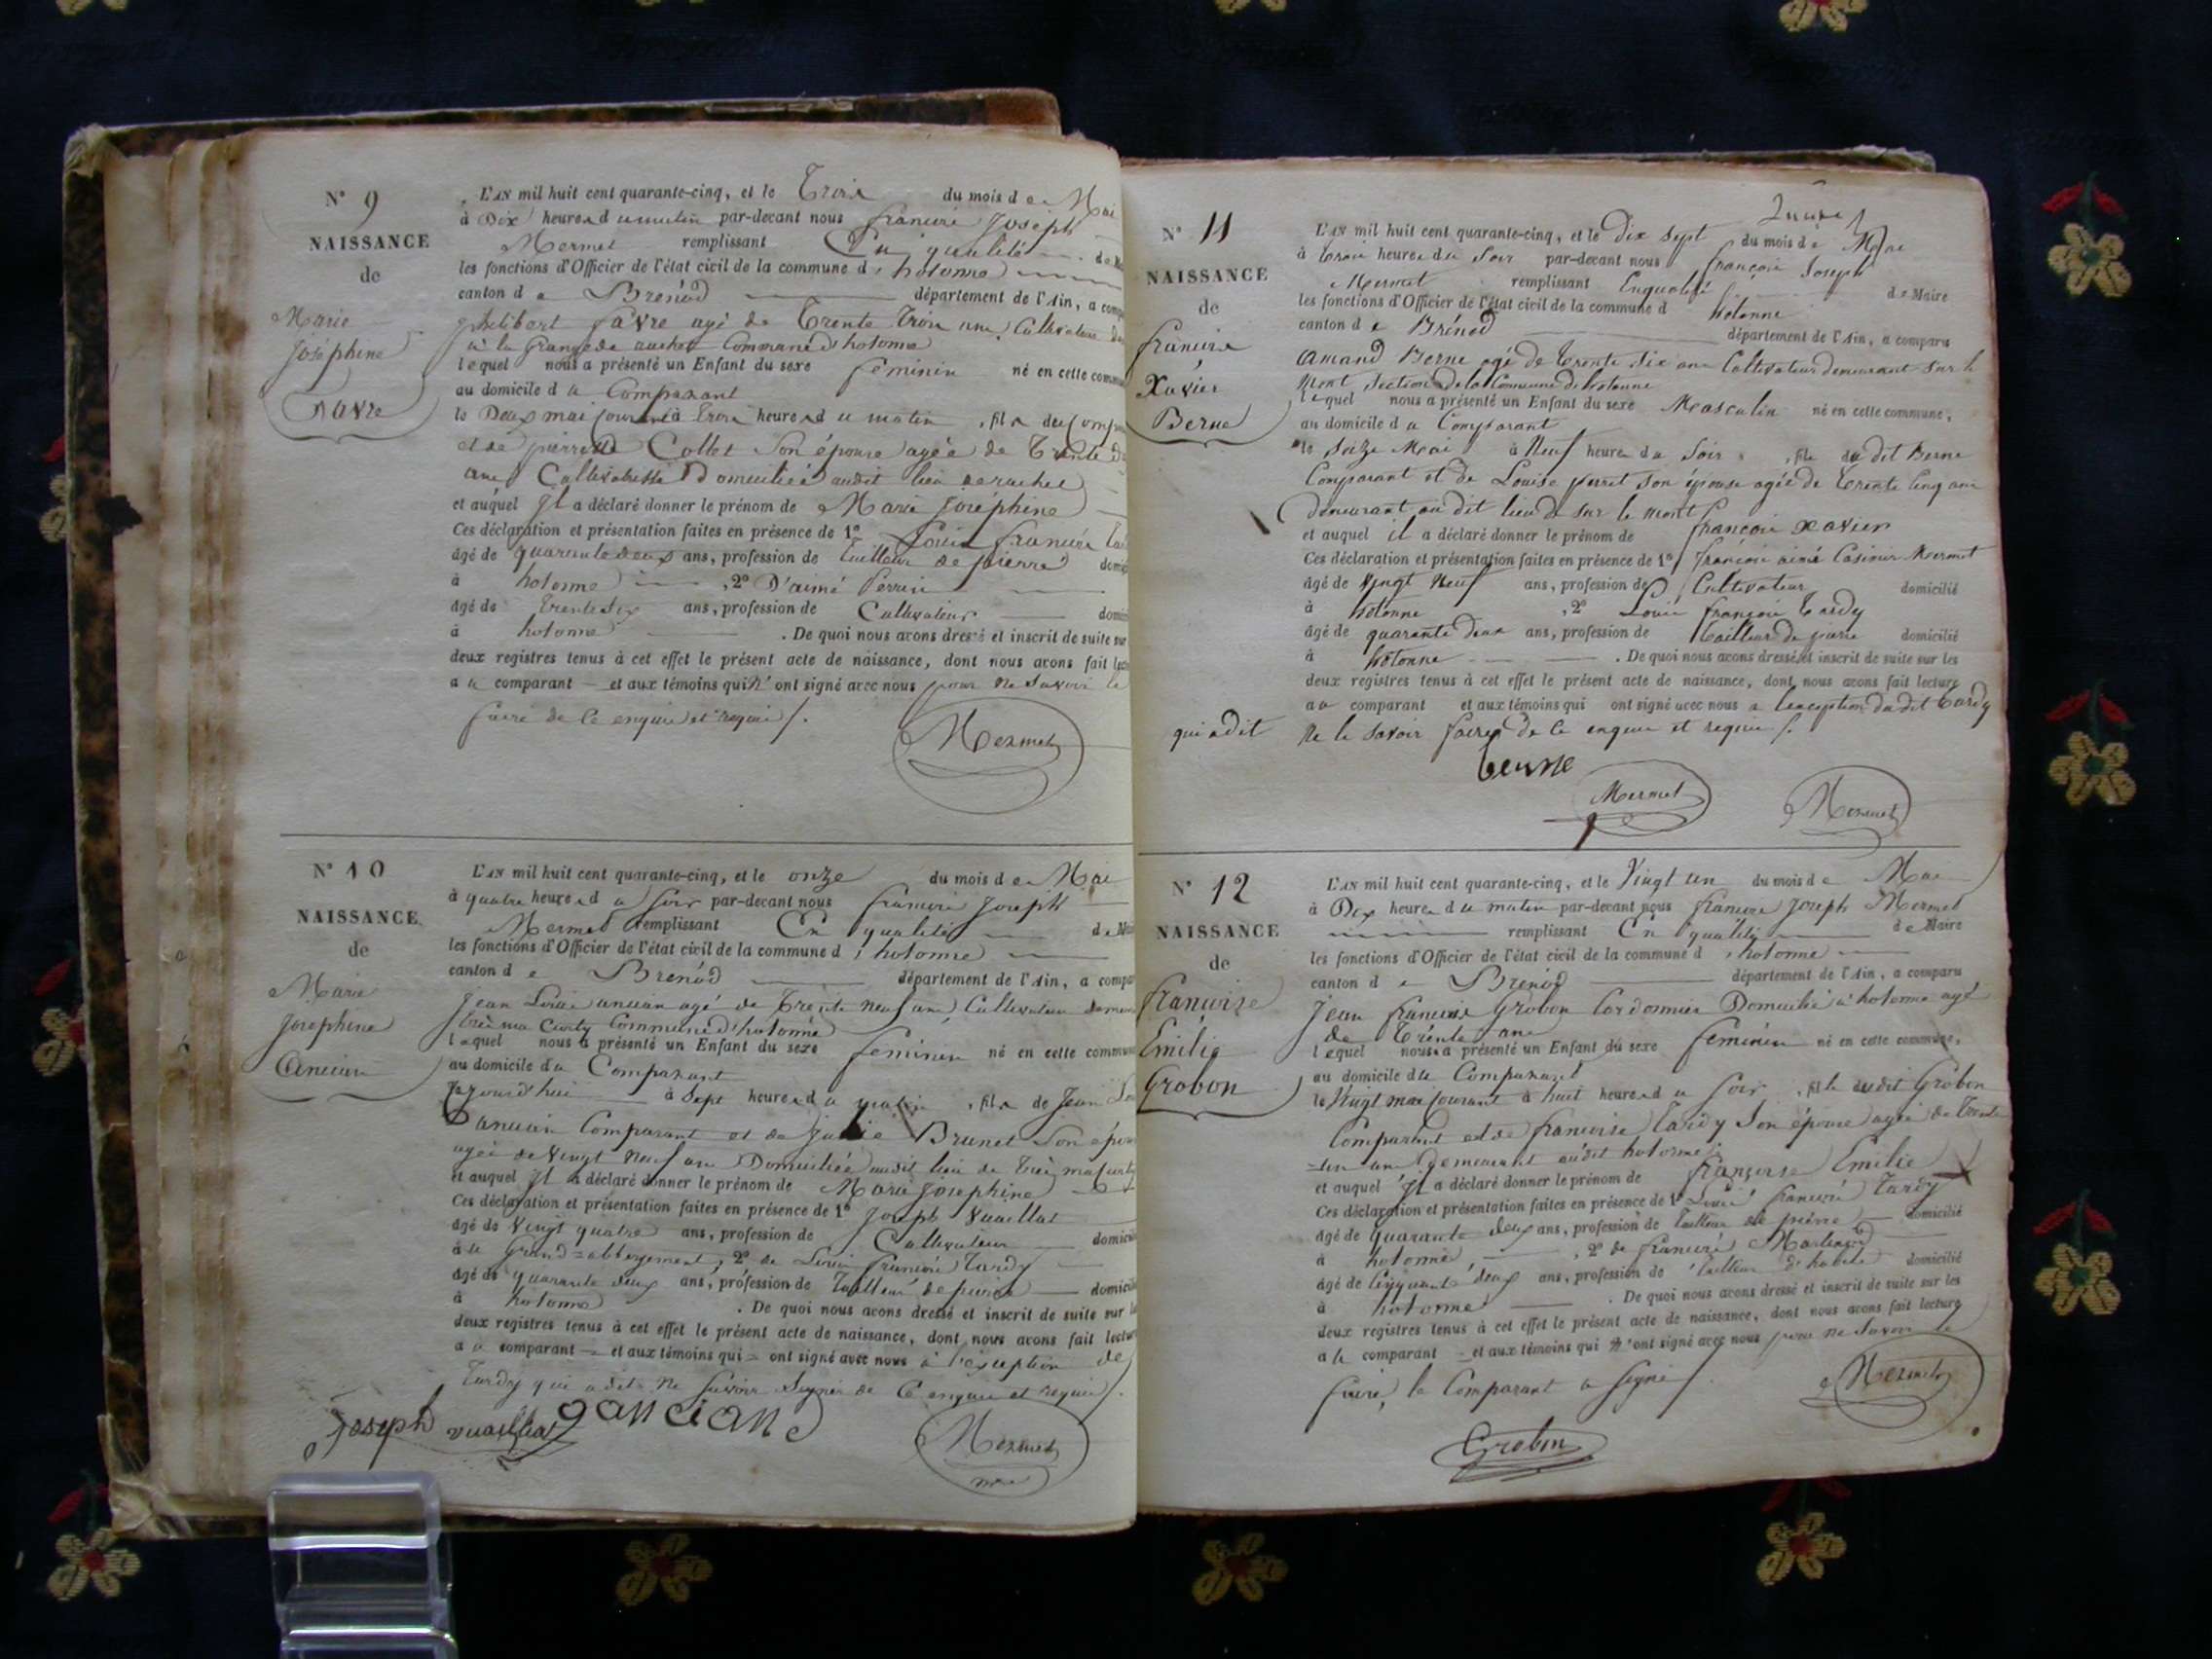 N° 9
NAISSANCE
de
Marie
Joséphine
favre
L'AN mil huit cent quarante-cinq, et le Trois du mois de Mai
à Dix heures du matin par-devant nous francois Joseph
Mermet remplissant En qualité de
les fonctions d'Officier de l'état civil de la commune d'hotonne
canton de Brenod département de l'Ain, a
philibert favre agé de Trente Trois ans Cultivateur
à la Grange de Commune d'hotonne
lequel nous a présenté un Enfant du sexe féminin né en cette
au domicile du Comparant
le Deux mai Courant à trois heures du matin, fils du
et de pierrette Collet Son épouse agée de Trente
ans Cultivatrice Domiciliée audit lieu
et auquel Il a déclaré donner le prénom de Marie Joséphine
Ces déclaration et présentation faites en présence de 1° Louis francois
âgé de quarante deux ans, profession de tailleur de pierre
à hotonne, 2° D'aimé Perrin
âgé de trente six ans, profession de Cultivateur
à hotonne. De quoi nous avons dressé et inscrit de suite sur
deux registres tenus à cet effet le présent acte de naissance, dont nous avons fait
au comparant et aux témoins qui n'ont signé avec nous pour ne Savoir le
faire de Ce enquis et requis /.
Mermet
N° 10
NAISSANCE
de
Marie
Josephine
Ancian
L'AN mil huit cent quarante-cinq, et le onze du mois de Mai
à quatre heures du soir par-devant nous francois Joseph
Mermet remplissant En qualité de
les fonctions d'Officier de l'état civil de la commune d'hotonne
canton de Brenod département de l'Ain, a
Jean Louis ancian agé de Trente neuf ans Cultivateur
Commune d'hotonne
lequel nous a présenté un Enfant du sexe féminin né en cette
au domicile du Comparant
Jourd'hui à Sept heures du matin, fils de Jean
ancian Comparant et de Julie Brunet Son
agée de vingt neuf ans Domiciliée audit lieu de
et auquel Il a déclaré donner le prénom de Marie Josephine
Ces déclaration et présentation faites en présence de 1° Joseph Vuaillat
âgé de Vingt quatre ans, profession de Cultivateur
à u Grand=abbergement, 2° de Louis francois Tardy
âgé de quarante deux ans, profession de Tailleur de pierre
à hotonne. De quoi nous avons dressé et inscrit de suite sur
deux registres tenus à cet effet le présent acte de naissance, dont nous avons fait
au comparant et aux témoins qui ont signé avec nous à l'exception de
Tardy qui a dit ne Savoir Signer de Ce enquis et requis /.
Joseph vuaillat ganciane
Mermet
N° 11
NAISSANCE
de
francois
Xavier
Berne
L'AN mil huit cent quarante-cinq, et le dix Sept du mois de Mai
à trois heures du Soir par-devant nous françois Joseph
Mermet remplissant Enqualité de Maire
les fonctions d'Officier de l'état civil de la commune d hotonne
canton de Brénod département de l'Ain, a comparu
Amand Berne agé de trente Six ans Cultivateur demeurant Sur le
Mont Section de la Commune de hotonne
lequel nous a présenté un Enfant du sexe Masculin né en cette commune,
au domicile du Comparant
le Seize Mai à Neuf heures du Soir, fils du dit Berne
Comparant et de Louise perret son épouse agée de trente Cinq ans
Demeurant au dit lieu de Sur le mont
et auquel il a déclaré donner le prénom de francois xavier
Ces déclaration et présentation faites en présence de 1° françois aimé Casimir Mermet
âgé de Vingt Neuf ans, profession de Cultivateur domicilié
à hotonne, 2° Louis françois Tardy
âgé de quarante deux ans, profession de tailleur de pierre domicilié
à hotonne. De quoi nous avons dressé et inscrit de suite sur les
deux registres tenus à cet effet le présent acte de naissance, dont nous avons fait lecture
au comparant et aux témoins qui ont signé avec nous a lexception du dit Tardy
qui a dit Ne le Savoir faire de Ce enquis et requis /.
berne
Mermet
Mermet
N° 12
NAISSANCE
de
francoise
Emilie
Grobon
L'AN mil huit cent quarante-cinq, et le Vingt un du mois de Mai
à Dix heures du matin par-devant nous francois Joseph Mermet
remplissant En qualité de Maire
les fonctions d'Officier de l'état civil de la commune d'hotonne
canton de Brenod département de l'Ain, a comparu
Jean francois Grobon Cordonnier Domicilié à hotonne agé
de Trente ans
lequel nous a présenté un Enfant du sexe féminin né en cette commune,
au domicile du Comparant
le Vingt mai Courant à huit heures du Soir, fils dudit Grobon
Comparant et de francoise Tardy Son épouse agée de Trente
un ans demeurant audit hotonne
et auquel Il a déclaré donner le prénom de françoise Emilie
Ces déclaration et présentation faites en présence de 1° Louis francois Tardy
âgé de quarante deux ans, profession de tailleur de pierre domicilié
à hotonne, 2° de francois
âgé de Cinquante deux ans, profession de tailleur d'habits domicilié
à hotonne. De quoi nous avons dressé et inscrit de suite sur les
deux registres tenus à cet effet le présent acte de naissance, dont nous avons fait lecture
au comparant et aux témoins qui n'ont signé avec nous pour ne Savoir le
faire, le Comparant a Signé /.
Mermet
Grobon